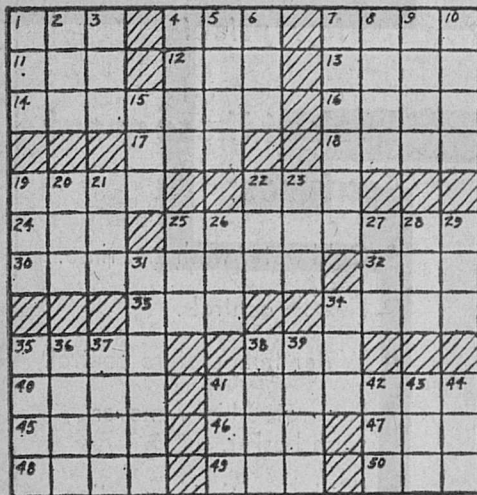 1 2 3 4 5 6 7 8 9 10
11 12 13
14 15 16
17 18
19 20 21 22 23
24 25 26 27 28 29
30 31 32
33 34
35 36 37 38 39
40 41 42 43 44
45 46 47
48 49 50